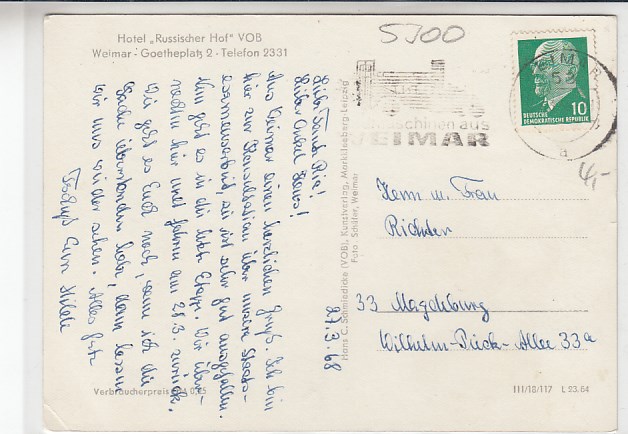 Hotel „Russischer Hof" VOB
Weimar - Goetheplatz 2 - Telefon 2331
5300
WEIMAR
aschinen aus
WEIMAR
10
DEUTSCHE
DEMOKRATISCHE REPUBLIK
4,-
27.3.68
Liebe Tante Ria!
Lieber Onkel Hans!
Aus Weimar einen herzlichen Gruß. Ich bin
hier zur Konsultation über unsere Staats-
examensarbeit, sie ist sehr gut ausgefallen.
Nun geht es in die letzte Etappe. Wir über-
nachten hier und fahren am 28.3. zurück.
Wie geht es Euch noch, wenn ich die
Sache überstanden habe, dann lassen
wir uns wieder sehen. Alles Gute
Tschüß Eure Heidi
Hans C. Schmiedicke (VOB), Kunstverlag, Markkleeberg-Leipzig
Foto: Schäfer, Weimar
Herrn u. Frau
Richter
33 Magdeburg
Wilhelm-Pieck-Allee 33a
Verbraucherpreis
III/18/117 L 23.64